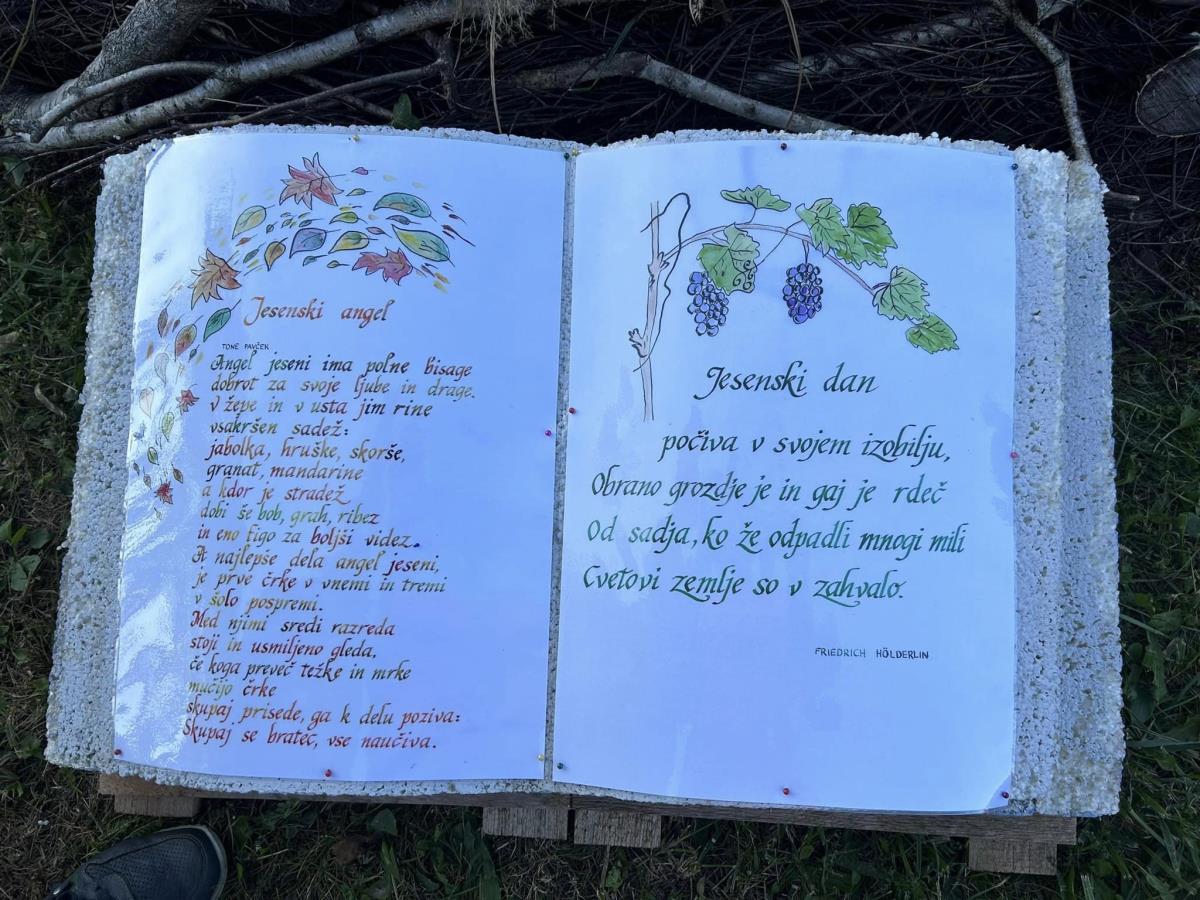 Jesenski angel
TONE PAVČEK
Angel jeseni ima polne bisage
dobrot za svoje ljube in drage.
V žepe in v usta jim rine
vsakršen sadež:
jabolka, hruške, skorše,
granat, mandarine
a kdor je stradež
dobi še bob, grah, ribez
in eno figo za boljši videz.
A najlepše dela angel jeseni,
je prve črke v vnemi in tremi
v šolo pospremi.
Med njimi sredi razreda
stoji in usmiljeno gleda,
če koga preveč težke in mrke
mučijo črke
skupaj prisede, ga k delu poziva:
Skupaj se bratec, vse naučiva.
Jesenski dan
počiva v svojem izobilju,
Obrano grozdje je in gaj je rdeč
Od sadja, ko že odpadli mnogi mili
Cvetovi zemlje so v zahvalo.
FRIEDRICH HÖLDERLIN